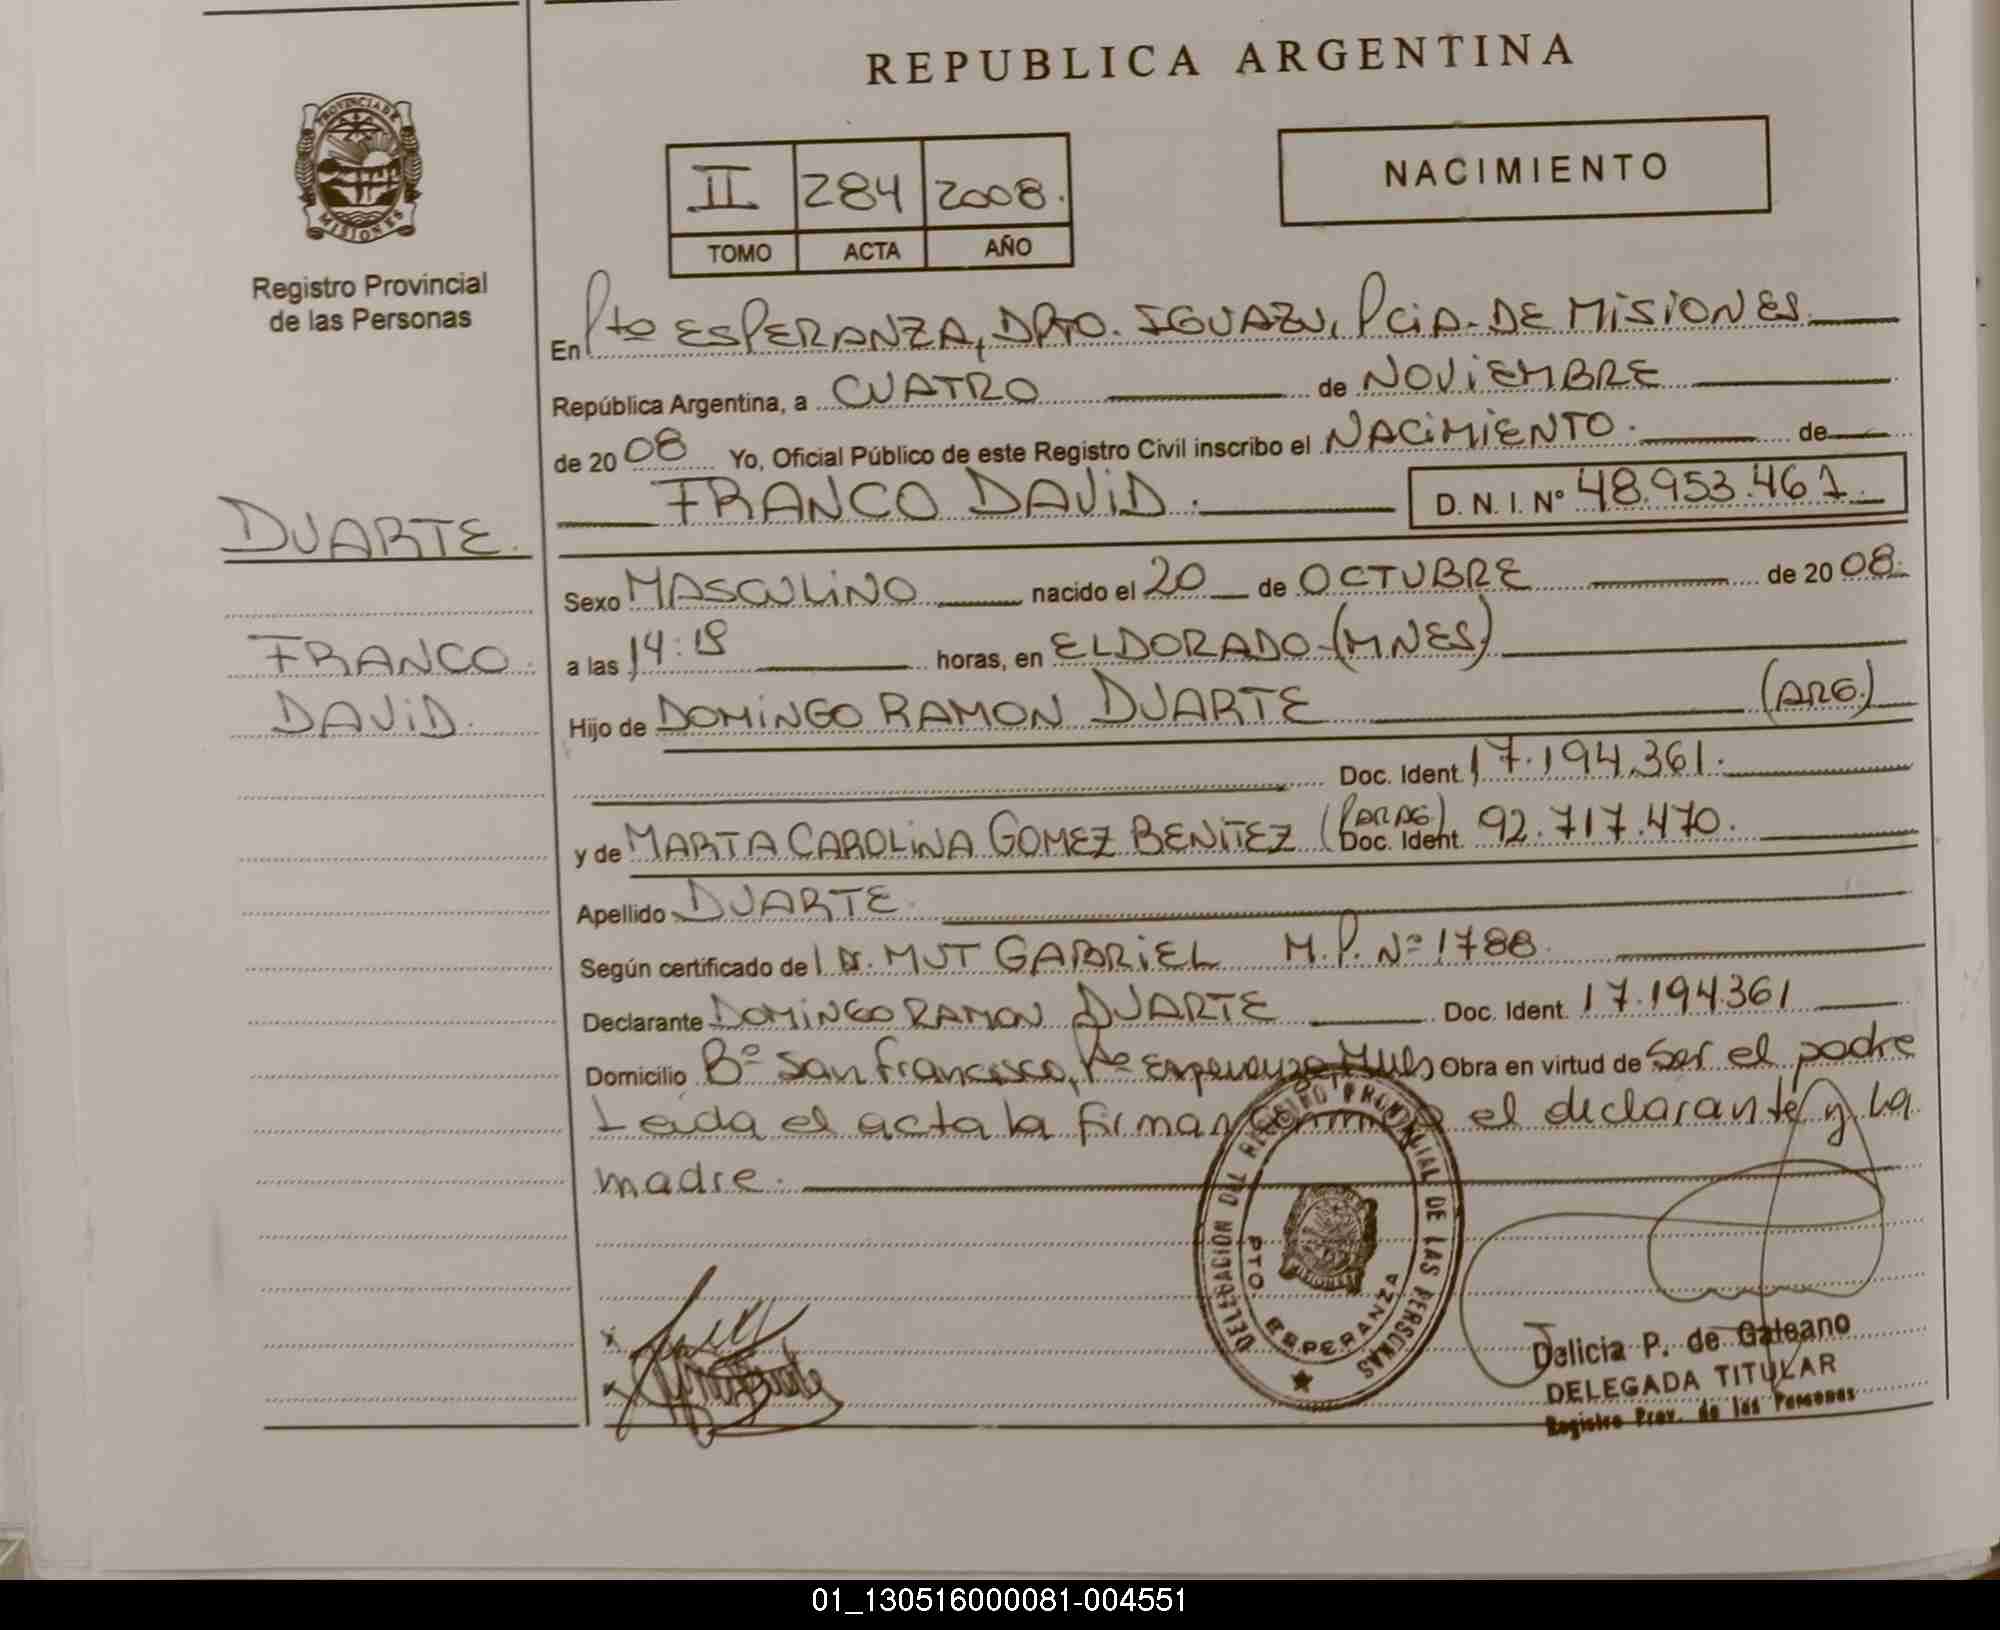 REPUBLICA ARGENTINA
PROVINCIA DE
MISIONES
Registro Provincial
de las Personas
NACIMIENTO
II 284 2008.
TOMO ACTA AÑO
En Pto ESPERANZA, DPTO. IGUAZU, PCIA. DE MISIONES
República Argentina, a CUATRO de NOVIEMBRE
de 2008 Yo, Oficial Público de este Registro Civil inscribo el NACIMIENTO. de
FRANCO DAVID. D. N. I. Nº 48.953.461.
DUARTE.
FRANCO
DAVID.
Sexo MASCULINO nacido el 20 de OCTUBRE de 2008.
a las 14:18 horas, en ELDORADO-(MNES)
Hijo de DOMINGO RAMON DUARTE (ARG.)
Doc. Ident. 17.194.361.
y de MARTA CAROLINA GOMEZ BENITEZ (PARAG) Doc. Ident. 92.717.470.
Apellido DUARTE.
Según certificado del Dr. MUT GABRIEL M.P. Nº 1788.
Declarante DOMINGO RAMON DUARTE Doc. Ident. 17.194.361
Domicilio Bº San Francisco, Pto Esperanza Mnes Obra en virtud de Ser el padre
Leida el acta la firman conmigo el declarante y La
madre.
DELEGACION DEL REGISTRO PROVINCIAL DE LAS PERSONAS
PTO. ESPERANZA
Delicia P. de Galeano
DELEGADA TITULAR
Registro Prov. de las Personas
01_130516000081-004551